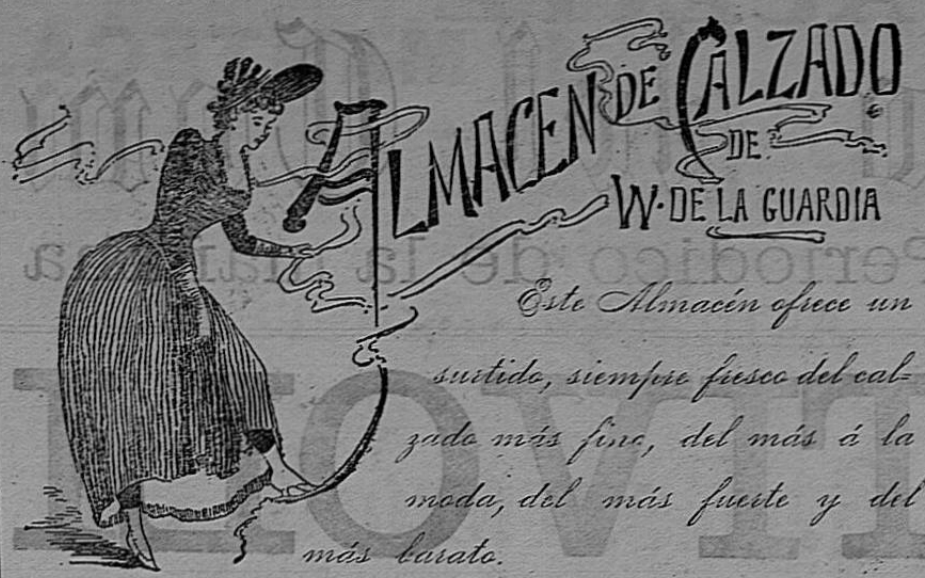 ALMACEN DE CALZADO
DE
W. DE LA GUARDIA
Este Almacén ofrece un
surtido, siempre fresco del cal-
zado más fino, del más á la
moda, del más fuerte y del
más barato.